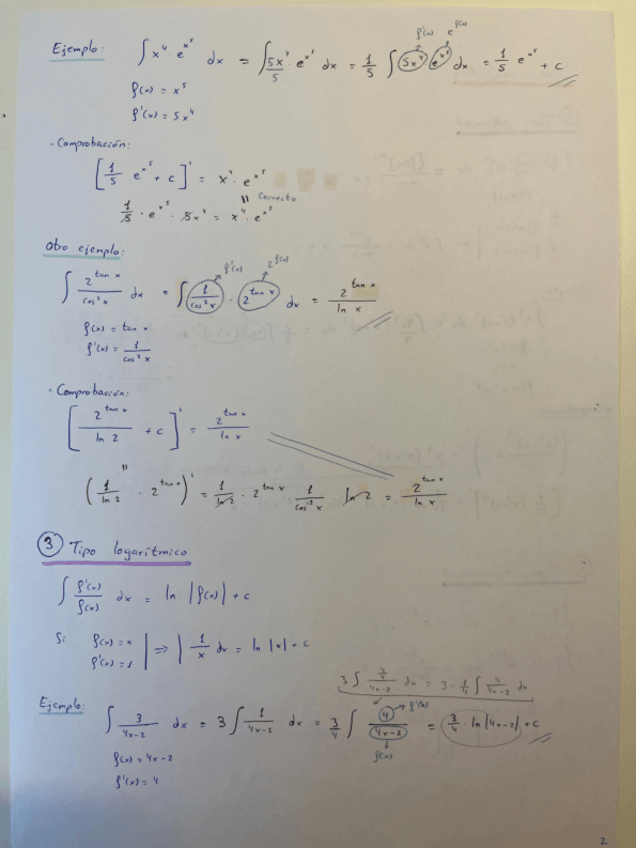 Ejemplo: ∫ x⁴ e^(x⁵) dx = ∫ 5x⁴/5 · e^(x⁵) dx = 1/5 ∫ 5x⁴ e^(x⁵) dx = 1/5 e^(x⁵) + c
f'(x) e^(f(x))
f(x) = x⁵
f'(x) = 5x⁴
· Comprobación:
[1/5 e^(x⁵) + c]' = x⁴ · e^(x⁵)
" correcto
1/5 · e^(x⁵) · 5x⁴ = x⁴ · e^(x⁵)
Otro ejemplo:
f'(x) 2^(f(x))
∫ 2^(tan x)/cos² x dx = ∫ 1/cos² x · 2^(tan x) dx = 2^(tan x)/ln x
f(x) = tan x
f'(x) = 1/cos² x
· Comprobación:
[2^(tan x)/ln 2 + c]' = 2^(tan x)/ln x
"
(1/ln 2 · 2^(tan x))' = 1/ln 2 · 2^(tan x) 1/cos² x ln 2 = 2^(tan x)/ln x
③ Tipo logarítmico
∫ f'(x)/f(x) dx = ln |f(x)| + c
Si f(x) = x | ⇒ ∫ 1/x dx = ln |x| + c
f'(x) = 1
3 ∫ 4/4/4x-2 dx = 3 · 1/4 ∫ 4/4x-2 dx
Ejemplo: ∫ 3/4x-2 dx = 3 ∫ 1/4x-2 dx = 3/4 ∫ 4/4x-2 = 3/4 · ln |4x-2| + c
f'(x)
f(x)
f(x) = 4x-2
f'(x) = 4
2